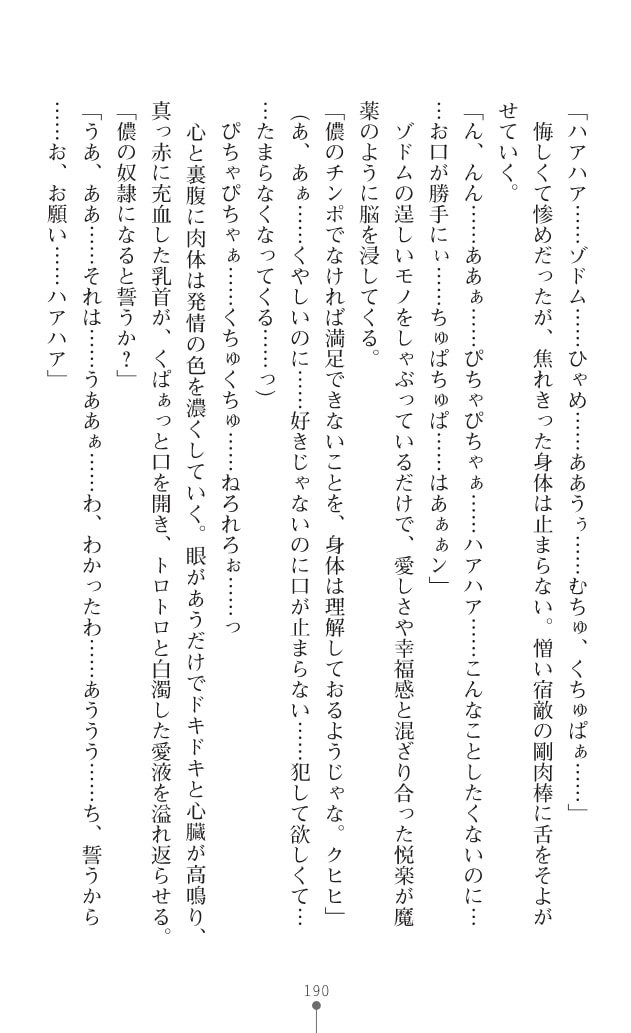 「ハアハア……ゾドム……ひゃめ……ああうぅ……むちゅ、くちゅぱぁ……」
　悔しくて惨めだったが、焦れきった身体は止まらない。憎い宿敵の剛肉棒に舌をそよが
せていく。
「ん、んん……ああぁ……ぴちゃぴちゃぁ……ハアハア……こんなことしたくないのに…
…お口が勝手にぃ……ちゅぱちゅぱ……はあぁぁン」
　ゾドムの逞しいモノをしゃぶっているだけで、愛しさや幸福感と混ざり合った悦楽が魔
薬のように脳を浸してくる。
「儂のチンポでなければ満足できないことを、身体は理解しておるようじゃな。クヒヒ」
(あ、あぁ……くやしいのに……好きじゃないのに口が止まらない……犯して欲しくて…
…たまらなくなってくる……っ)
　ぴちゃぴちゃぁ……くちゅくちゅ……ねろれろぉ……っ
　心と裏腹に肉体は発情の色を濃くしていく。眼があうだけでドキドキと心臓が高鳴り、
真っ赤に充血した乳首が、くぱぁっと口を開き、トロトロと白濁した愛液を溢れ返らせる。
「儂の奴隷になると誓うか？」
「うあ、ああ……それは……うああぁ……わ、わかったわ……あううう……ち、誓うから
……お、お願い……ハアハア」
190